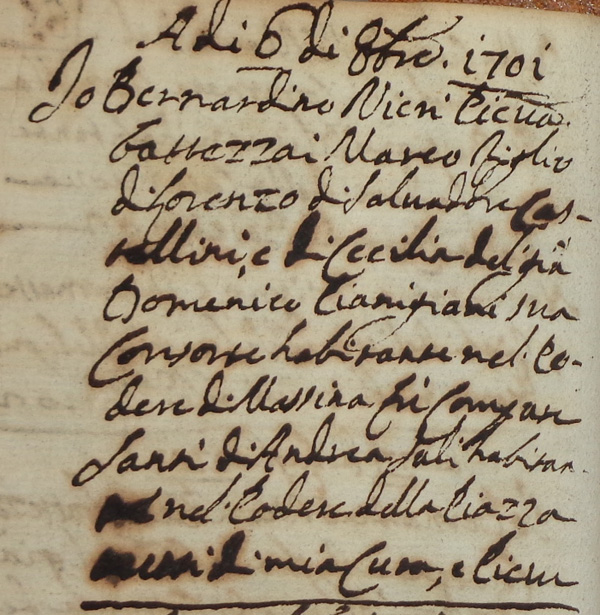 Adi 6 di 8bre. 1701
Io Bernardino Nieri Pieva.
battezzai Marco figlio
di Lorenzo di Salvadore Cas-
tellini, e di Cecilia del già
Domenico Cianigiani sua
Consorte habitante nel Po-
dere di Massina fù Compare
Santi di Andrea Sali habitan-
nel Podere della Piazza
di mia Cura, e Pieve